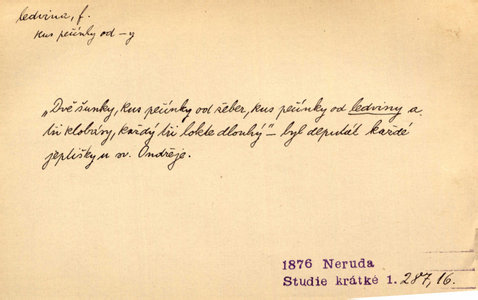 ledvina, f.
kus pečínky od -y
„Dvě šunky, kus pečínky od žeber, kus pečínky od ledviny a
tři klobásy, každý tři lokte dlouhý" – byl deputát každé
jeptišky u sv. Ondřeje.
1876 Neruda
Studie krátké 1. 287, 16.